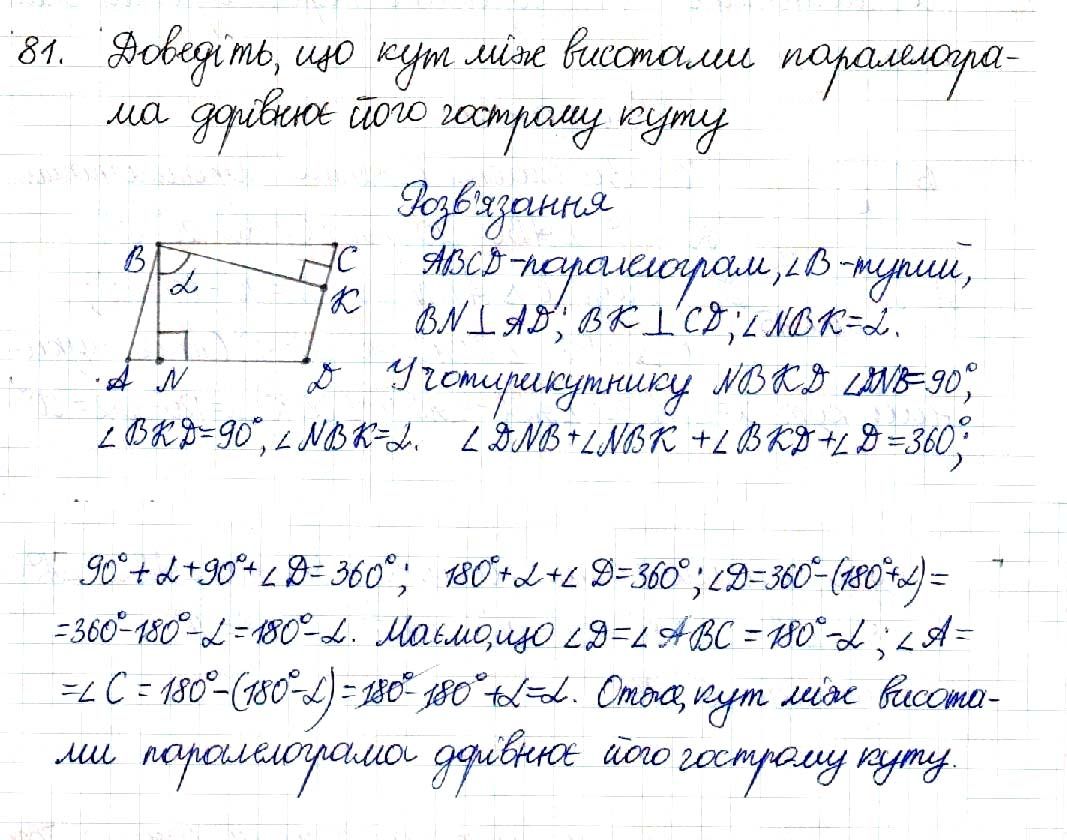 81. Доведіть, що кут між висотами паралелогра-
ма дорівнює його гострому куту
Розв'язання
B C
α
K
A N D
ABCD-паралелограм, ∠B-тупий,
BN⊥AD; BK⊥CD; ∠NBK=α.
У чотирикутнику NBKD ∠DNB=90°,
∠BKD=90°, ∠NBK=α. ∠DNB+∠NBK+∠BKD+∠D=360°;
90°+α+90°+∠D=360°; 180°+α+∠D=360°; ∠D=360°-(180°+α)=
=360°-180°-α=180°-α. Маємо, що ∠D=∠ABC=180°-α; ∠A=
=∠C=180°-(180°-α)=180°-180°+α=α. Отже, кут між висота-
ми паралелограма дорівнює його гострому куту.